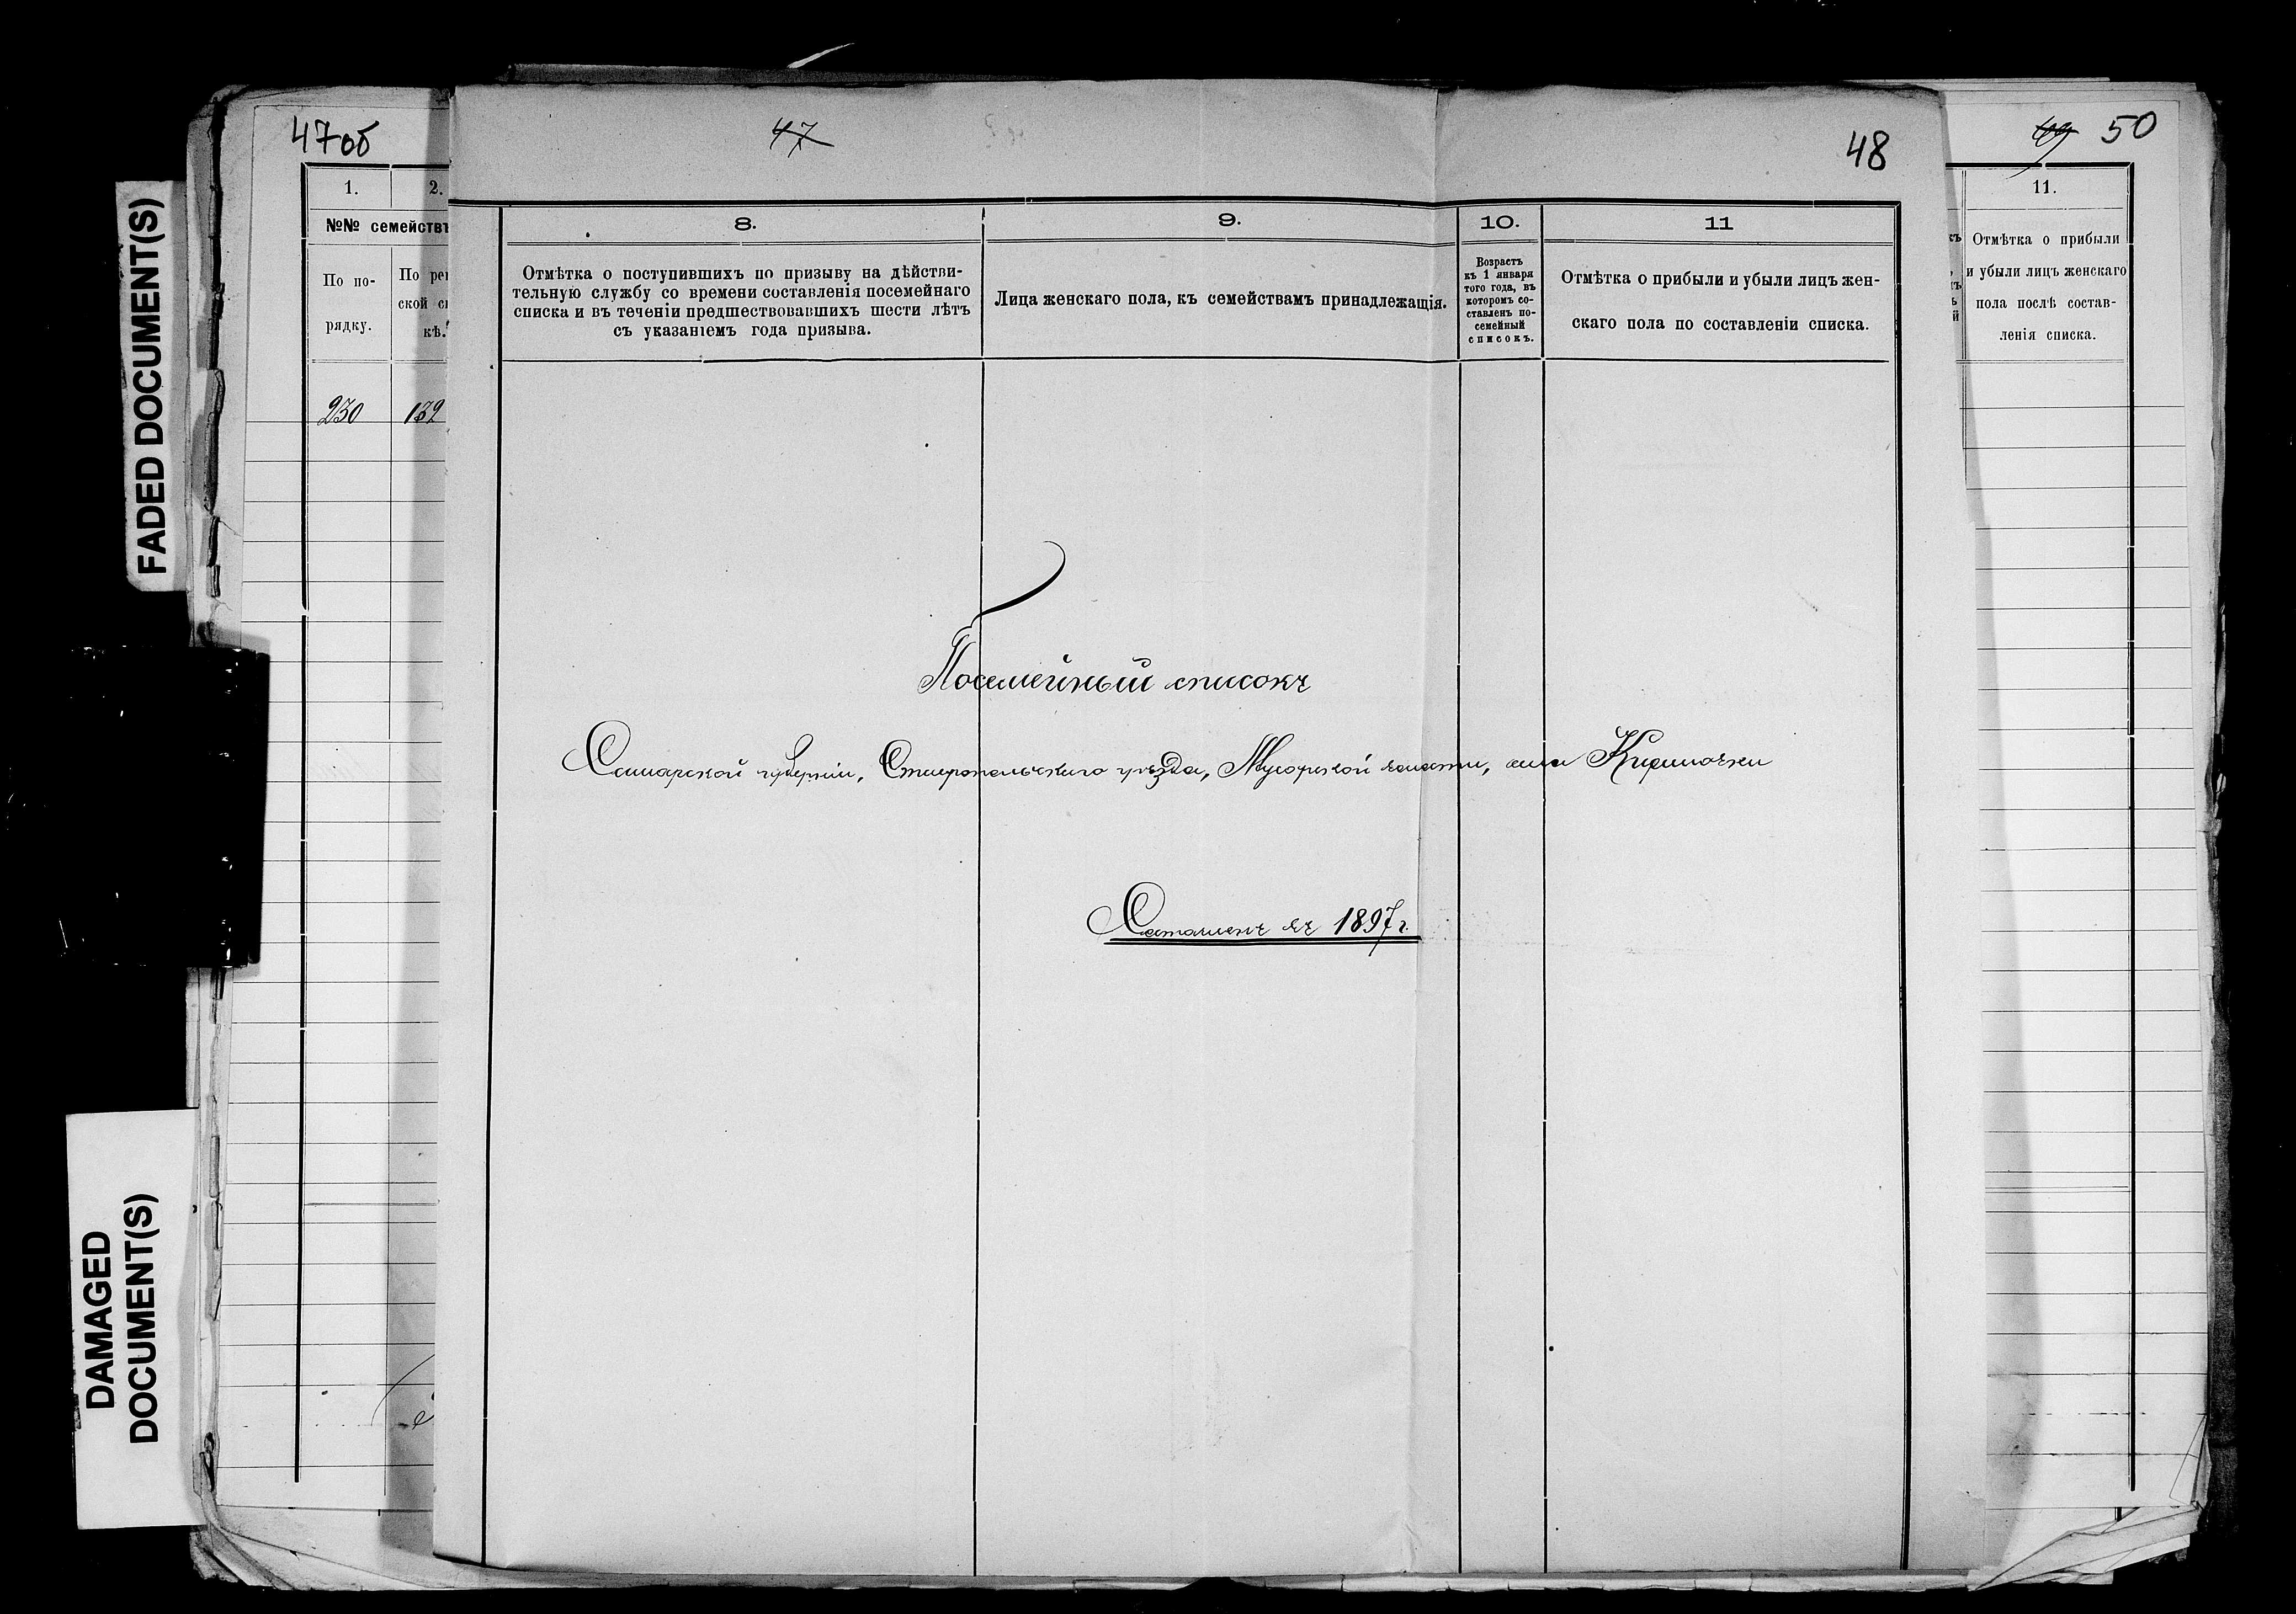 47об
47
48
49 50
FADED DOCUMENT(S)
DAMAGED
DOCUMENT(S)
1. 2.
№№ семействъ
По по-
рядку.
230 132
8.
Отмѣтка о поступившихъ по призыву на дѣйстви-
тельную службу со времени составленія посемейнаго
списка и въ теченіи предшествовавшихъ шести лѣтъ
съ указаніемъ года призыва.
9.
Лица женскаго пола, къ семействамъ принадлежащія.
10.
Возрастъ
къ 1 января
того года, въ
которомъ со-
ставленъ по-
семейный
списокъ.
11
Отмѣтка о прибыли и убыли лицъ жен-
скаго пола по составленіи списка.
11.
Отмѣтка о прибыли
и убыли лицъ женскаго
пола послѣ состав-
ленія списка.
Посемейный списокъ
Самарской губерніи, Ставропольскаго уѣзда, Мусорской волости, села Кирилловки
Составленъ въ 1897 г.